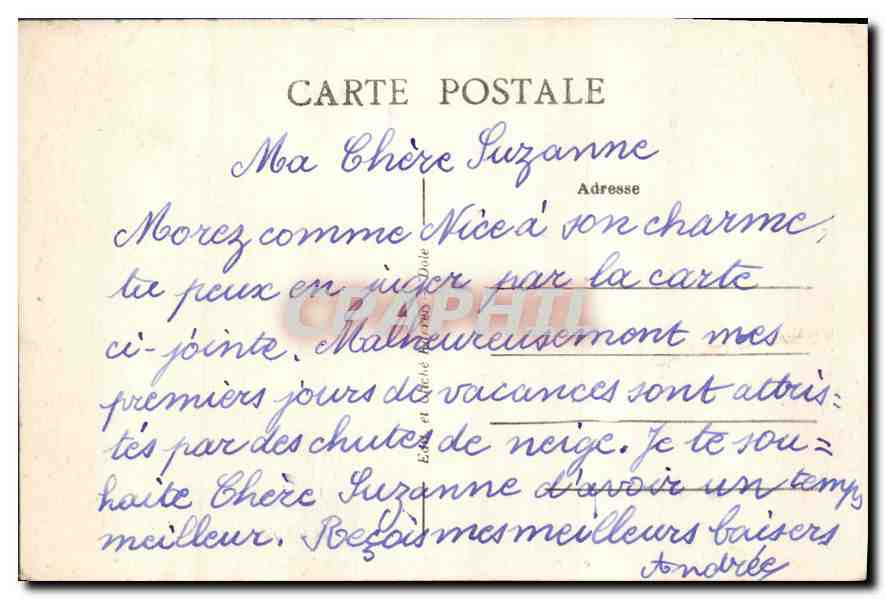 CARTE POSTALE
Ma Chère Suzanne
Adresse
Morez comme Nice à son charme,
tu peux en juger par la carte
ci-jointe. Malheureusement mes
premiers jours de vacances sont attris=
tés par des chutes de neige. Je te sou=
haite Chère Suzanne d'avoir un temps
meilleur. Reçois mes meilleurs baisers
Andrée
Edit. et Cliché Dole
CPAPHIL